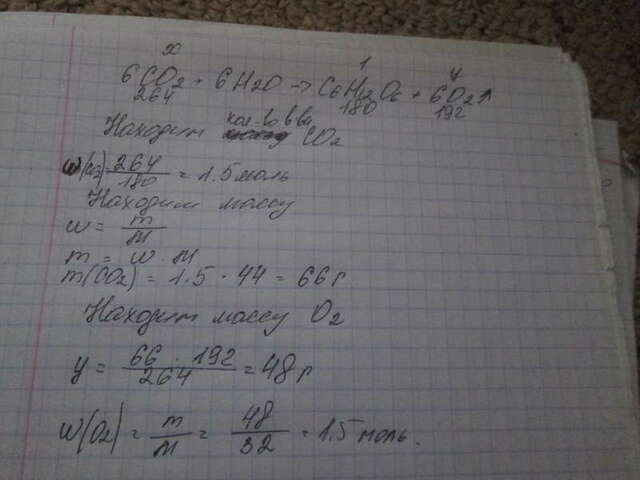 x 1 y
6CO2 + 6H2O → C6H12O6 + 6O2↑
264 180 192
Находим кол-во в-ва CO2
W(CO2) = 264/180 = 1.5 моль
Находим массу
w = m/M
m = w · M
m(CO2) = 1.5 · 44 = 66 г
Находим массу O2
y = 66 · 192/264 = 48 г
W(O2) = m/M = 48/32 = 1.5 моль.